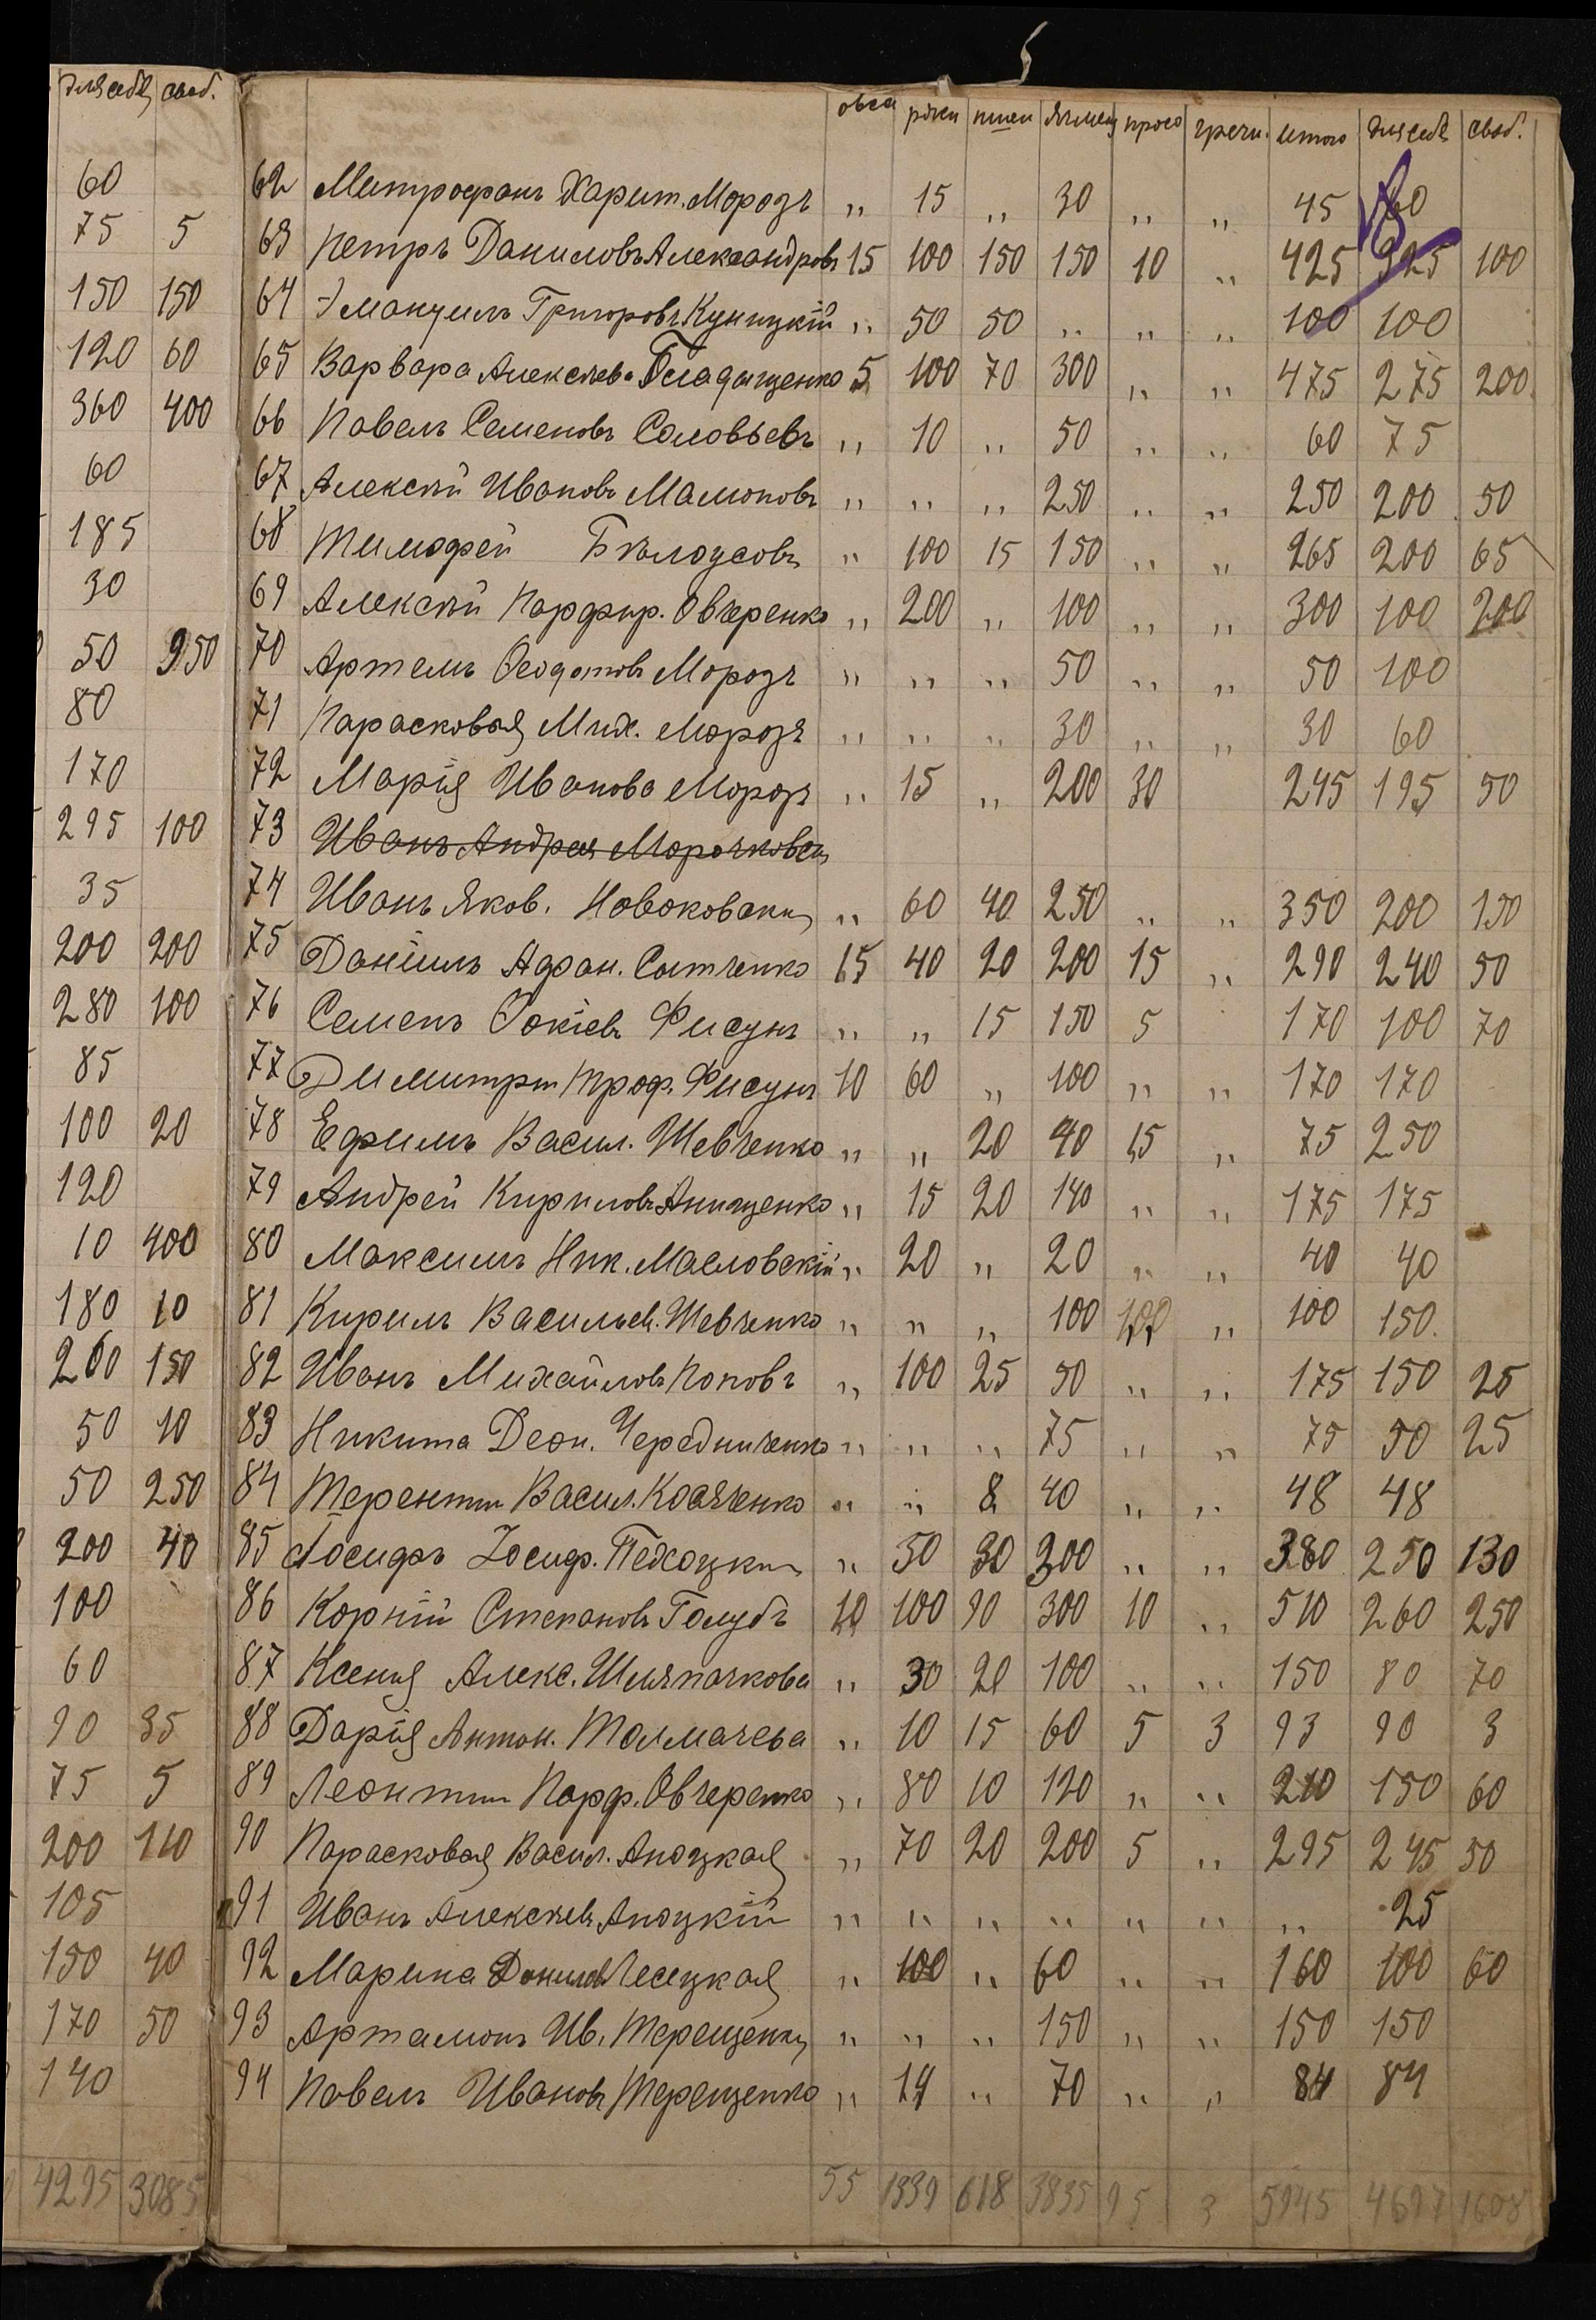 для себя свob.
60
75 5
150 150
120 60
360 400
60
185
30
50 950
80
170
295 100
35
200 200
280 100
85
100 20
120
10 400
180 10
200 150
50 10
50 250
200 40
100
60
90 35
75 5
200 110
105
150 40
170 50
140
4295 3085
овса ржи пшен ячмень просо гречи. итого для себя своб.
62 Митрофанъ Харит. Морозъ „ 15 „ 30 „ „ 45 60
63 Петръ Даниловъ Александровъ 15 100 150 150 10 „ 425 325 100
64 Эмануилъ Григоровъ Куницкій „ 50 50 „ „ „ 100 100
65 Варвара Алексѣева 5 100 70 300 „ „ 475 275 200
66 Павелъ Семеновъ Соловьевъ „ 10 „ 50 „ „ 60 75
67 Алексѣй Ивановъ Мамоновъ „ „ „ 250 „ „ 250 200 50
68 Тимофей Бѣлоусовъ „ 100 15 150 „ „ 265 200 65
69 Алексѣй Парфир. Овчеренко „ 200 „ 100 „ „ 300 100 200
70 Артемъ Феодотовъ Морозъ „ „ „ 50 „ „ 50 100
71 Парасковья Мих. Морозъ „ „ „ 30 „ „ 30 60
72 Марія Иванова Морозъ „ 15 „ 200 30 245 195 50
73 Иванъ Андрея
74 Иванъ Яков. Новоковскій „ 60 40 250 „ „ 350 200 150
75 Даніилъ Афан. Сытченко 15 40 20 200 15 „ 290 240 50
76 Семенъ Фокіевъ Фисунъ „ „ 15 150 5 170 100 70
77 Димитрій Троф. Фисунъ 10 60 „ 100 „ „ 170 170
78 Ефимъ Васил. Шевченко „ „ 20 40 15 „ 75 250
79 Андрей Кириловъ Анищенко „ 15 20 140 „ „ 175 175
80 Максимъ Ник. Масловскій „ 20 „ 20 „ „ 40 40
81 Кирилъ Васильев. Шевченко „ „ „ 100 100 „ 100 150.
82 Иванъ Михайловъ Поповъ „ 100 25 50 „ „ 175 150 25
83 Никита Деон. Чередниченко „ „ „ 75 „ „ 75 50 25
84 Терентій Васил. Косяченко „ „ 8 40 „ „ 48 48
85 Іосифъ Іосиф. Пехоцкій „ 50 30 300 „ „ 380 250 130
86 Корній Степановъ Голубъ 10 100 90 300 10 „ 510 260 250
87 Ксенія Алекс. Шляпочкова „ 30 20 100 „ „ 150 80 70
88 Дарія Антон. Толмачева „ 10 15 60 5 3 93 90 3
89 Леонтій Парф. Овчеренко „ 80 10 120 „ „ 210 150 60
90 Парасковья Васил. Аноцкая „ 70 20 200 5 „ 295 245 50
91 Иванъ Алексѣевъ Аноцкій „ „ „ „ „ „ „ 25
92 Марина Данилов Лесецкая „ 100 „ 60 „ „ 160 100 60
93 Артамонъ Ив. Терещенко „ „ „ 150 „ „ 150 150
94 Павелъ Ивановъ Терещенко „ 14 „ 70 „ „ 84 84
55 1339 618 3835 95 3 5945 4697 1608